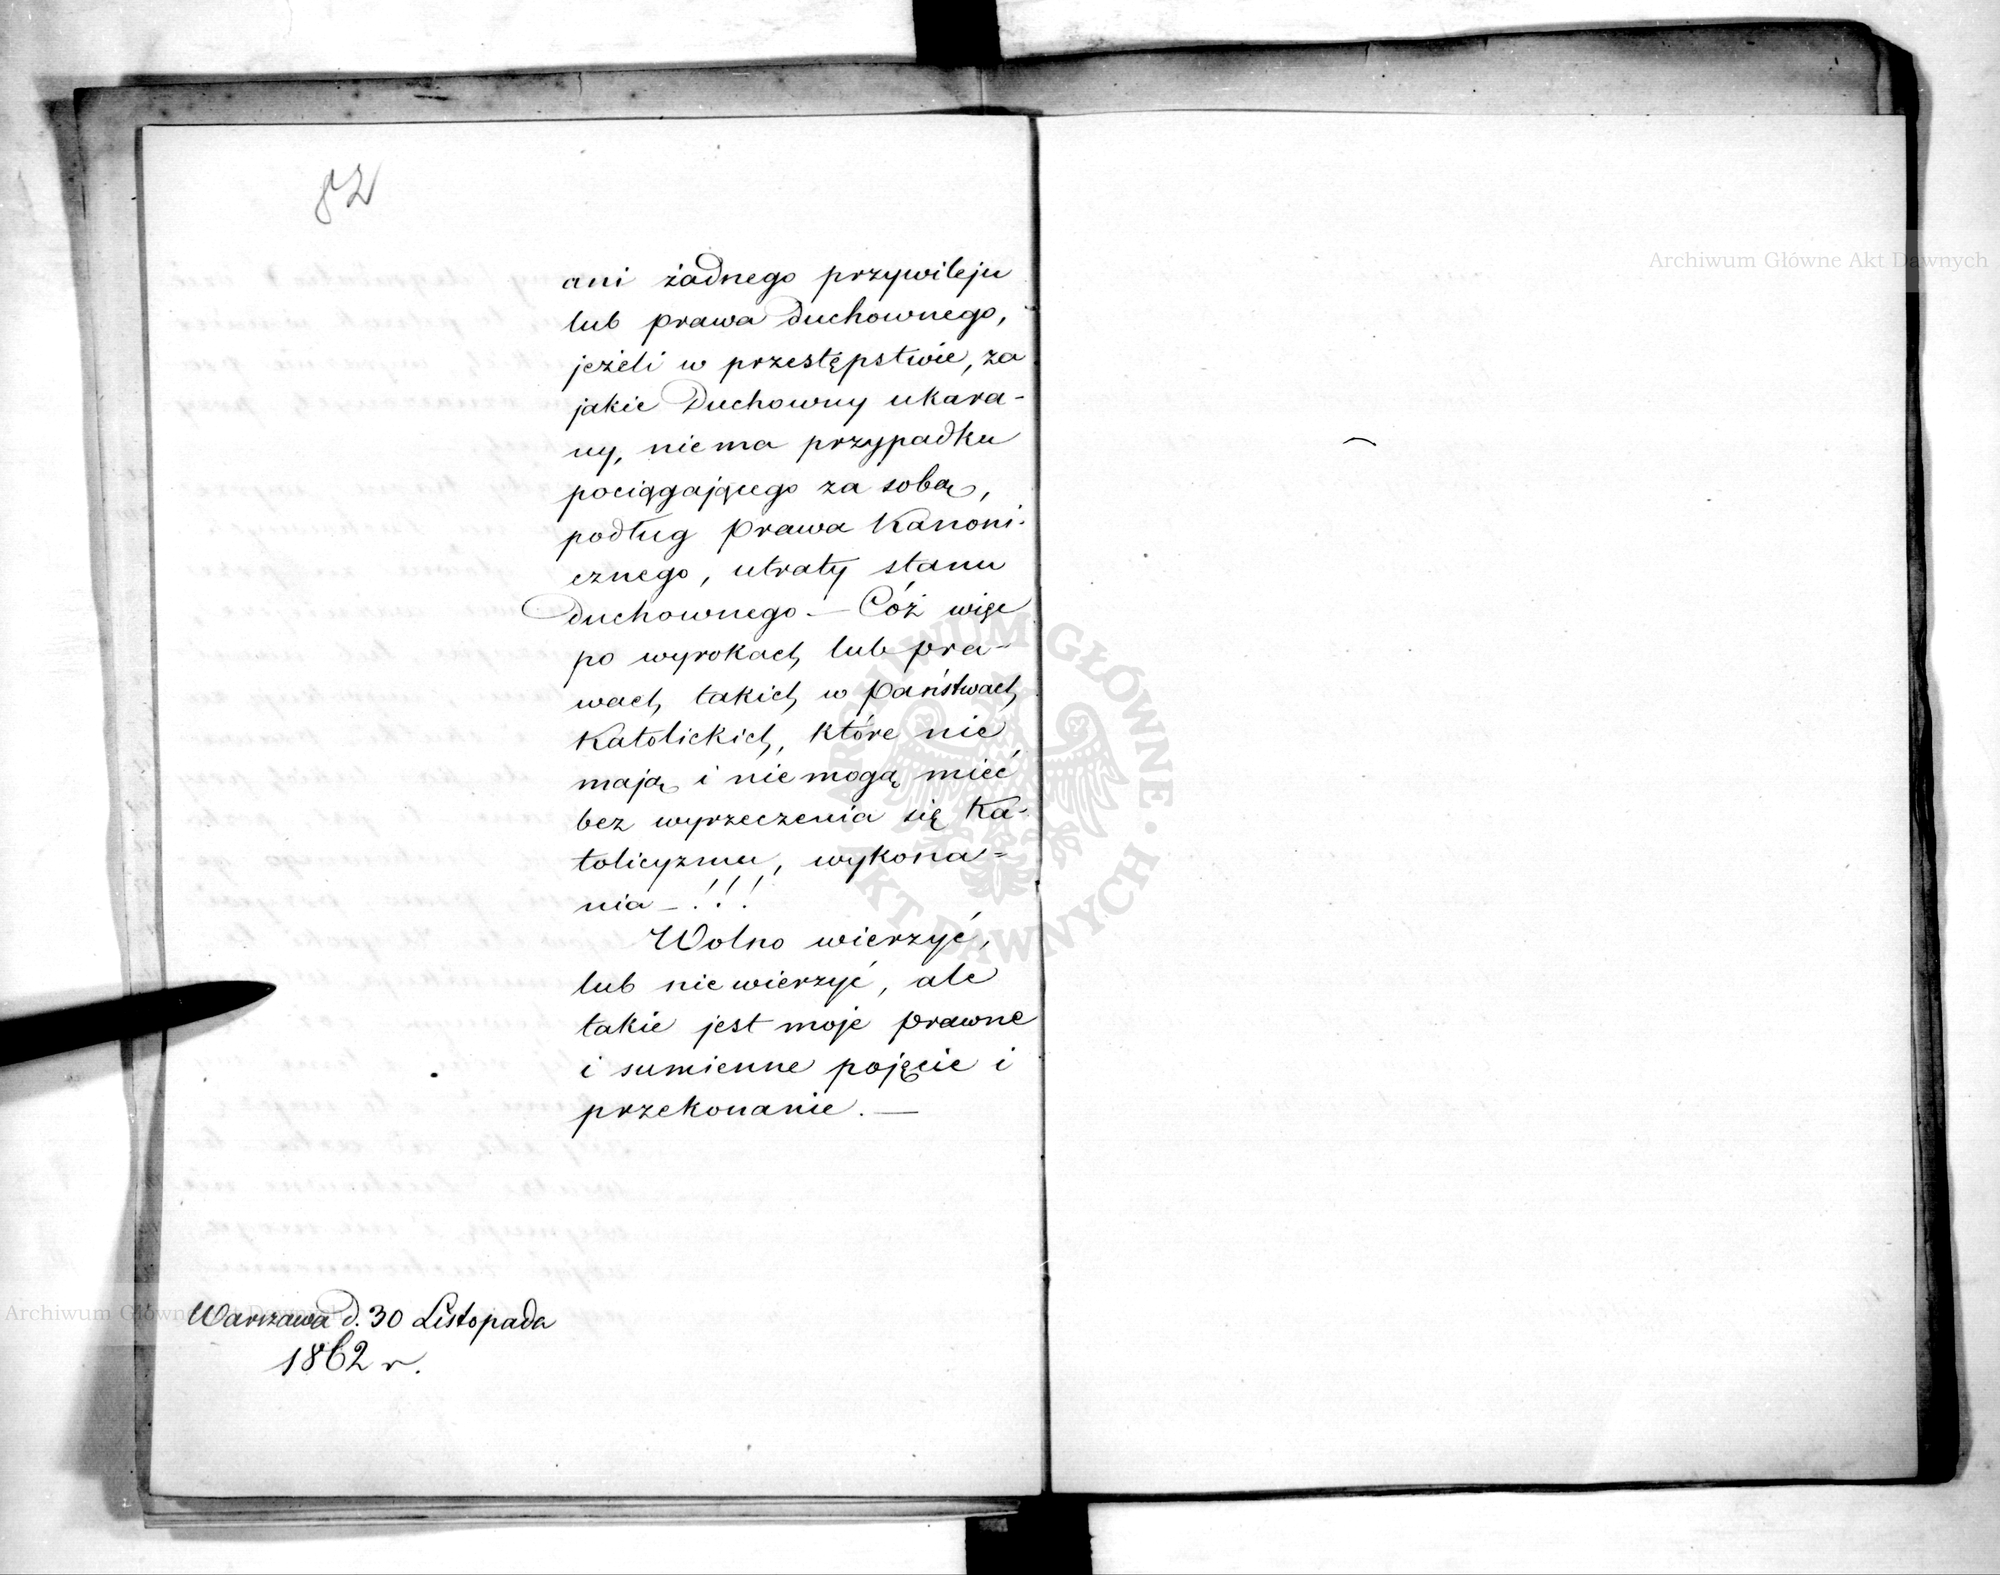 82
ani żadnego przywileju
lub prawa Duchownego,
jeżeli w przestępstwie, za
jakie Duchowny ukara-
ny, niema przypadku
pociągającego za sobą,
podług Prawa Kanoni-
cznego, utraty stanu
Duchownego. — Cóż więc
po wyrokach lub pra-
wach takich w Państwach
Katolickich, które nie
mają i nie mogą mieć
bez wyrzeczenia się Ka-
tolicyzmu, wykona=
nia — !!!
Wolno wierzyć,
lub nie wierzyć, ale
takie jest moje prawne
i sumienne pojęcie i
przekonanie. —
Warszawa d. 30 Listopada
1862 r.
Archiwum Główne Akt Dawnych
ARCHIWUM GŁÓWNE AKT DAWNYCH
Archiwum Główne Akt Dawnych